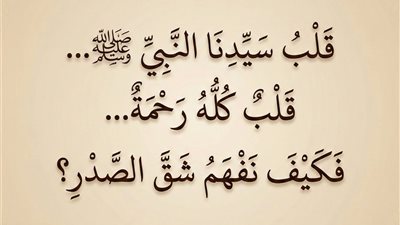 قَلْبُ سَيِّدِنَا النَّبِيِّ ﷺ...
قَلْبٌ كُلُّهُ رَحْمَةٌ...
فَكَيْفَ نَفْهَمُ شَقَّ الصَّدْرِ؟